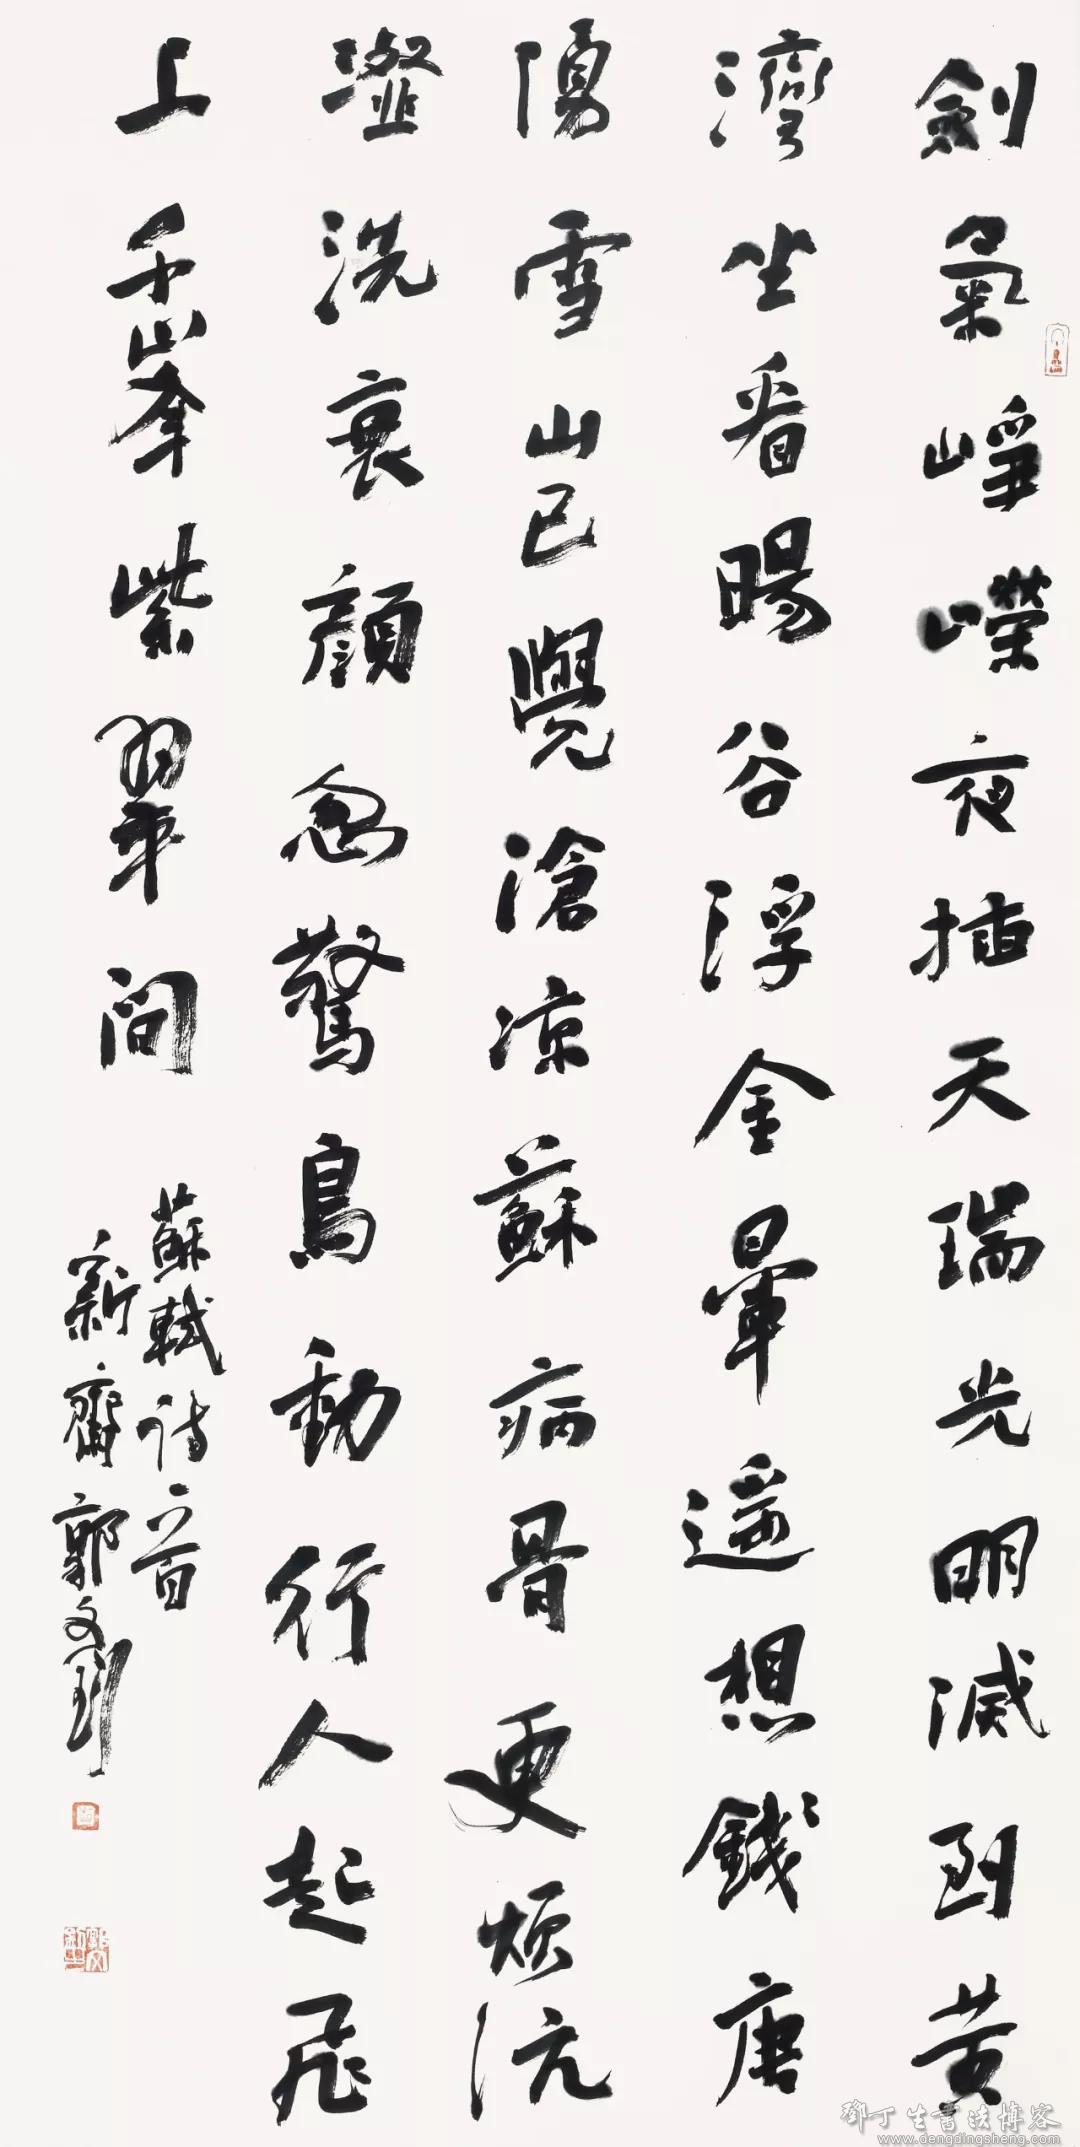 劍氣崢嶸夜插天瑞光明滅到黃
灣坐看暘谷浮金暈遙想錢唐
湧雪山已覺滄凉蘇病骨更煩沆
瀣洗衰顏忽驚鳥動行人起飛
上千峯紫翠間
蘇軾詩一首
新齋郭文
鄧丁生書法博客
www.dengdingsheng.com